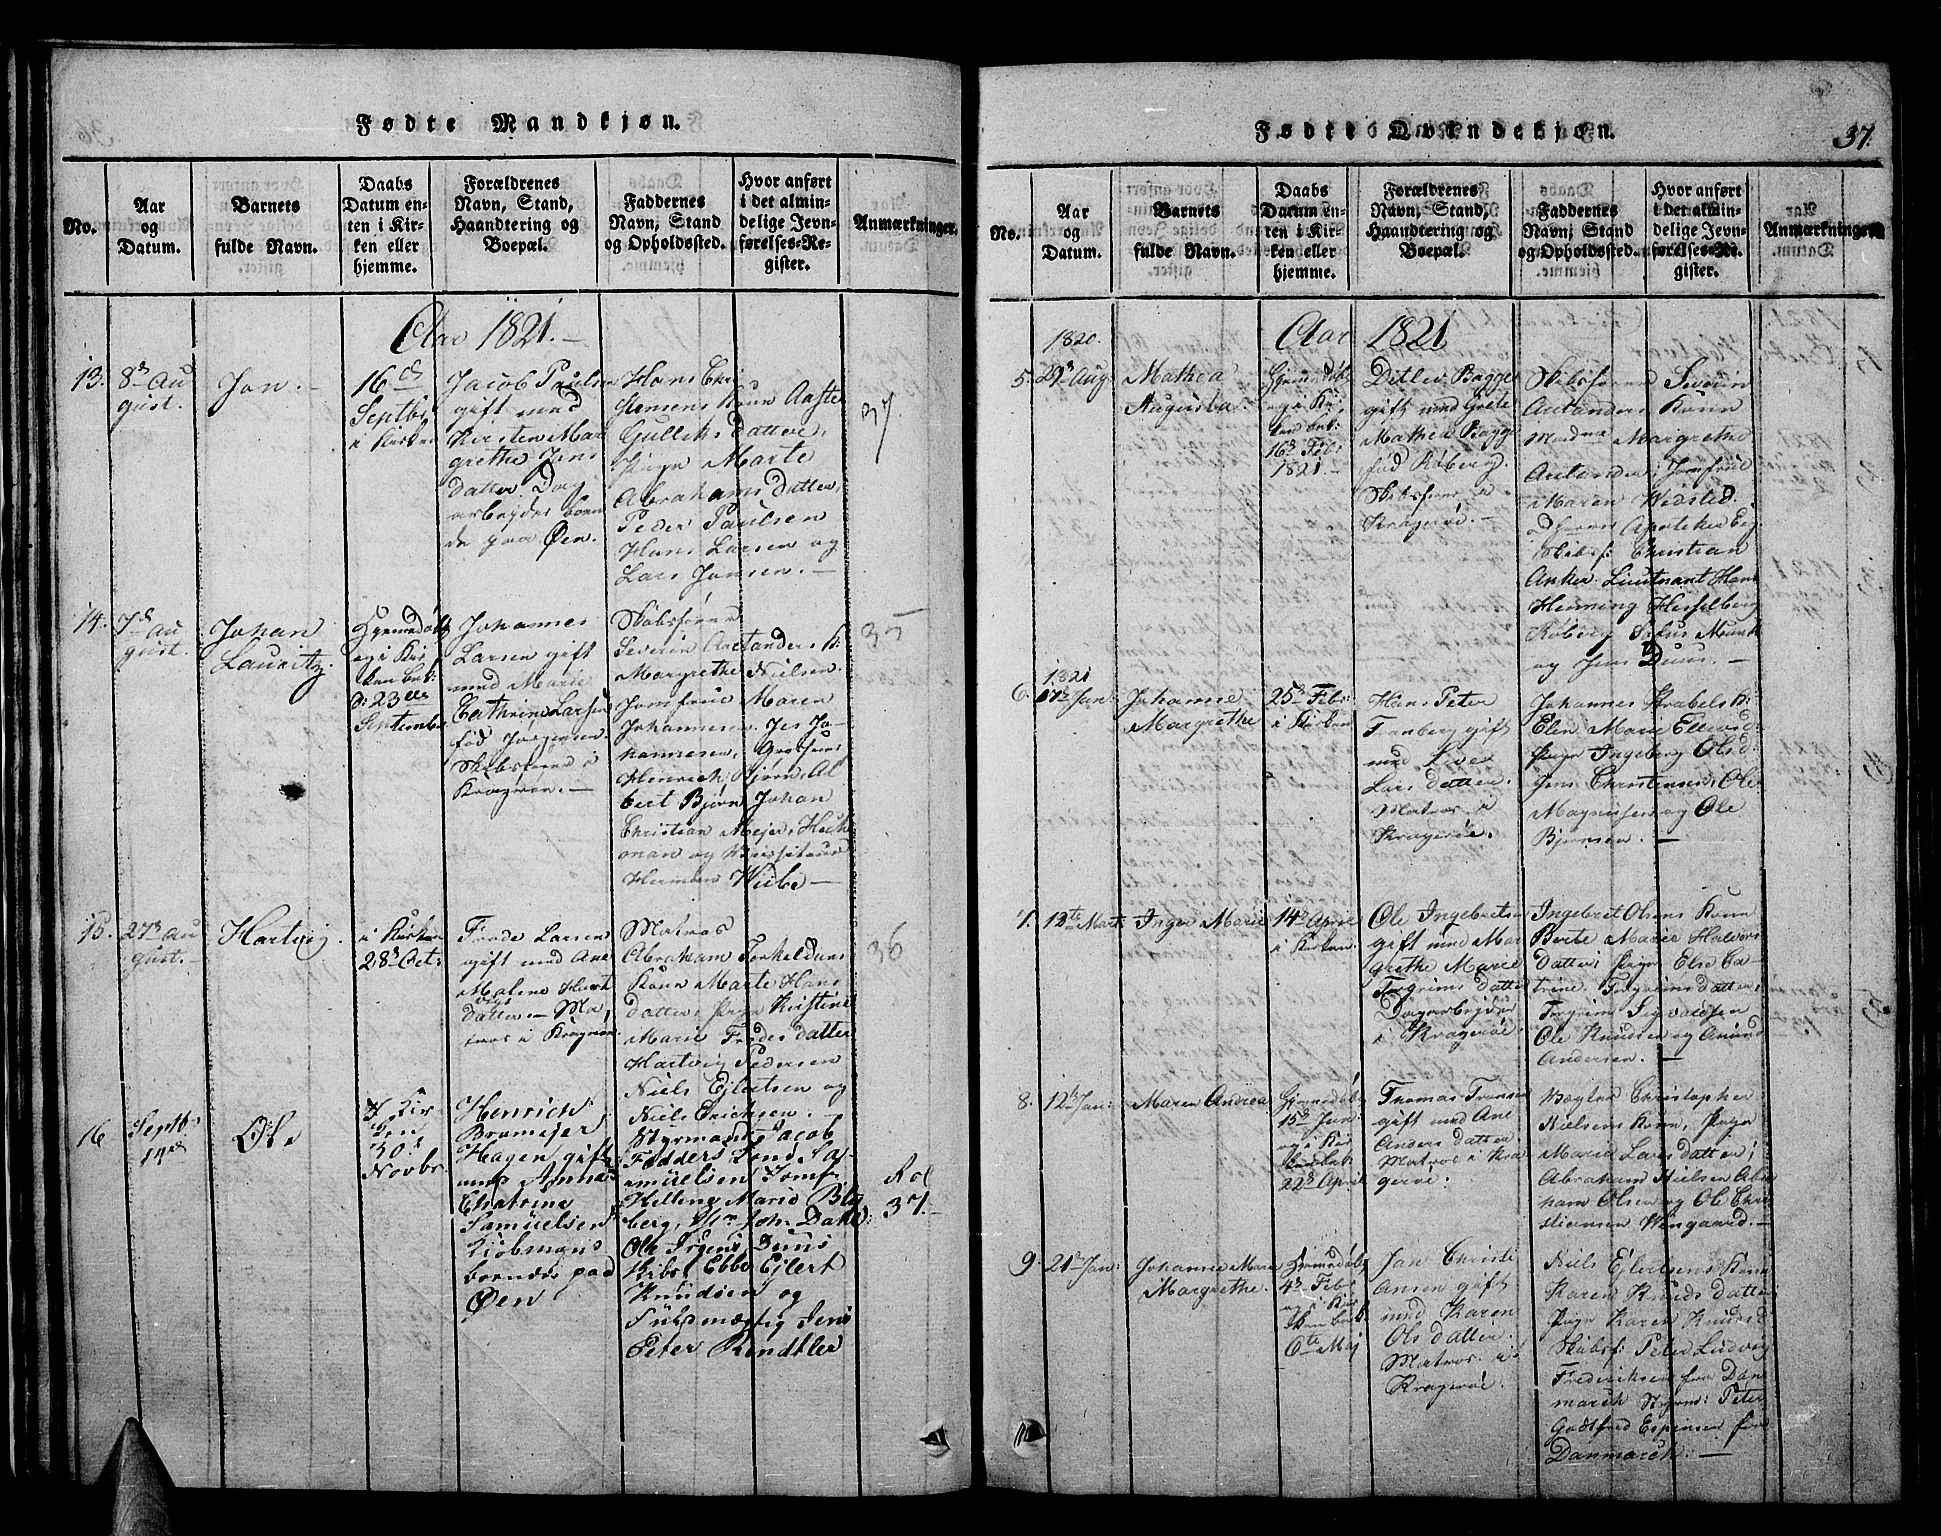 Fødte Mandkjøn.
No.
Aar
og
Datum.
Barnets
fulde Navn.
Daabs
Datum en-
ten i Kir-
ken eller
hjemme.
Forældrenes
Navn, Stand,
Haandtering og
Boepæl.
Faddernes
Navn, Stand
og Opholdssted.
Hvor anført
i det almin-
delige Jevn-
førelses-Re-
gister.
Anmærkninger.
Aar 1821.-
13.
8de Au
gust.
Jon.-
16de
Septbr
i Kirken
Jacob Paulsen
gift med
Kirsten Mar
grethe Jans
datter Dag
arbejder boen
de paa Øen.
Hans Chri
stensens Kone Aaste
Gulliksdatter,
Pige Marte
Abrahamsdatter,
Peder Paulsen
Hans Larsen og
Lars Jansen.-
37
14.
7de Au
gust.
Johan
Lauritz.
Hjemedøbt
og i Kir
ken bek:
d: 23de
September
Johannes
Larsen gift
med Marie
Cathrine Larsen
fød Jørgensen.
Skibsfører i
Kragerøe.-
Skibsfører
Severin Aretanders K:
Margrethe Nielsen.
Jomfrue Maren
Johannesen, Jes Jo-
hannesen,
Hinrich Bjørn, Al
bert Bjørn, Johan
Christian Mejer, Heit
man og
Wiibe-
35
15.
27de Au
gust.
Hartvig.
i Kirken
28de Oct:
Frode Larsen
gift med Ane
Malene Hart
vigs
datter.- Ma,
tros i Kragerøe.
Matros
Abraham Torkeldsens
Kone Marte Hans
datter, Pige Kirstine
Marie Frodesdatter
Hartvig Pedersen
Niels Ejlertsen og
Niels Erichsen.-
36
16
Septbr
14de
Ole
I Kir
ken
30te
Novbr
Henrich
Bramejer
Hagen gift
med Anna
Chatrine
Samuelsen
Kiøbmans
boende paa
Øen
Styrmand Jacob
Fedders Kone Sa-
muelsen Jomf
Helleng Maria Bla
berg, Hr Joh. Dahl:
Ole Irgens Duus
Skibsf Ebbe Ejlert
Knudsen og
Fuldmægtig Jens
Peter Rendtler
Rol
37.-
Fødte Qvindekjøn.
37.
No.
Aar
og
Datum.
Barnets
fulde Navn.
Daabs
Datum en-
ten i Kir-
ken eller
hjemme.
Forældrenes
Navn, Stand,
Haandtering og
Boepæl.
Faddernes
Navn, Stand
og Opholdssted.
Hvor anført
i det almin-
delige Jevn-
førelses-Re-
gister.
Anmærkninger.
Aar 1821
1820.
5.
29de Aug:
Mathea
Augusta.
Hjemmedøbt
og i Kir
ken bek:
16de Feb:
1821.-
Ditlev Bagge
gift med Grete
Mathea Bagge
fød Røberg.
Skibsfører i
Kragerøe.-
Skibsfører Siverin
Aretanders Kone
Madme Margrethe
Aretander, Jomfrue
Maren Wedsted.
Herrer Apoteker Eeg
Skibsf: Christian
Anker. Lieutnant Hans
Henning Hesselberg
Røberg, Sesus Munk
og Jens Duus.-
1821
6.
17de Jan:
Johanne
Margrethe
25de Feb:
i Kirken
Hans Peter
Tranberg gift
med Live
Larsdatter.
Matros i
Kragerøe.
Johannes Krabels K:
Elen Marie Ellevsd:
Pige Ingeborg Olsd:
Jens Christensen, Ole
Magnussen og Ole
Bjørnsen.-
7.
12te Marts
Inger Marie
14de April
i Kirken.
Ole Ingebretsen
gift med Mar
grethe Marie
Torgrimsdatter
Dagarbejder
i Kragerøe.
Ingebret Olsens Kone
Berte Marie Halvors
datter; Pige Else Ca-
trine Torgrimsdatter,
Torgrim Sigvaldsen
Ole Knudsen og Amund
Andersen.-
8.
12te Jan:
Maren Andrea
Hjemedøbt
15de Jan:
og i Kir
ken bek:
22de April
Thomas Fransen
gift med Ane
Andersdatter.
Matros i Kra
gerøe.
Vægter Christopher
Nielsens Kone, Pige
Maria Larsdatter;
Abraham Nielsen Abra
ham Olsen og Ole Chri
stiansen Wengaard.-
9.
21de Jan:
Johanne Marie
Margrethe.
Hjemedøbt
4de Feb:
og i Kir
ken bek:
6te Maj
Jan Christi
ansen gift
med Karen
Olsdatter.
Matros i
Kragerøe.
Niels Ejlertsens Kone
Karen Knudsdatter
Pige Karen Knudsd
Skibsf: Peter Ludvig
Frederiksen fra Dan
march Styrm: Peter
Godtfred Espensen fra
Danmarch.-